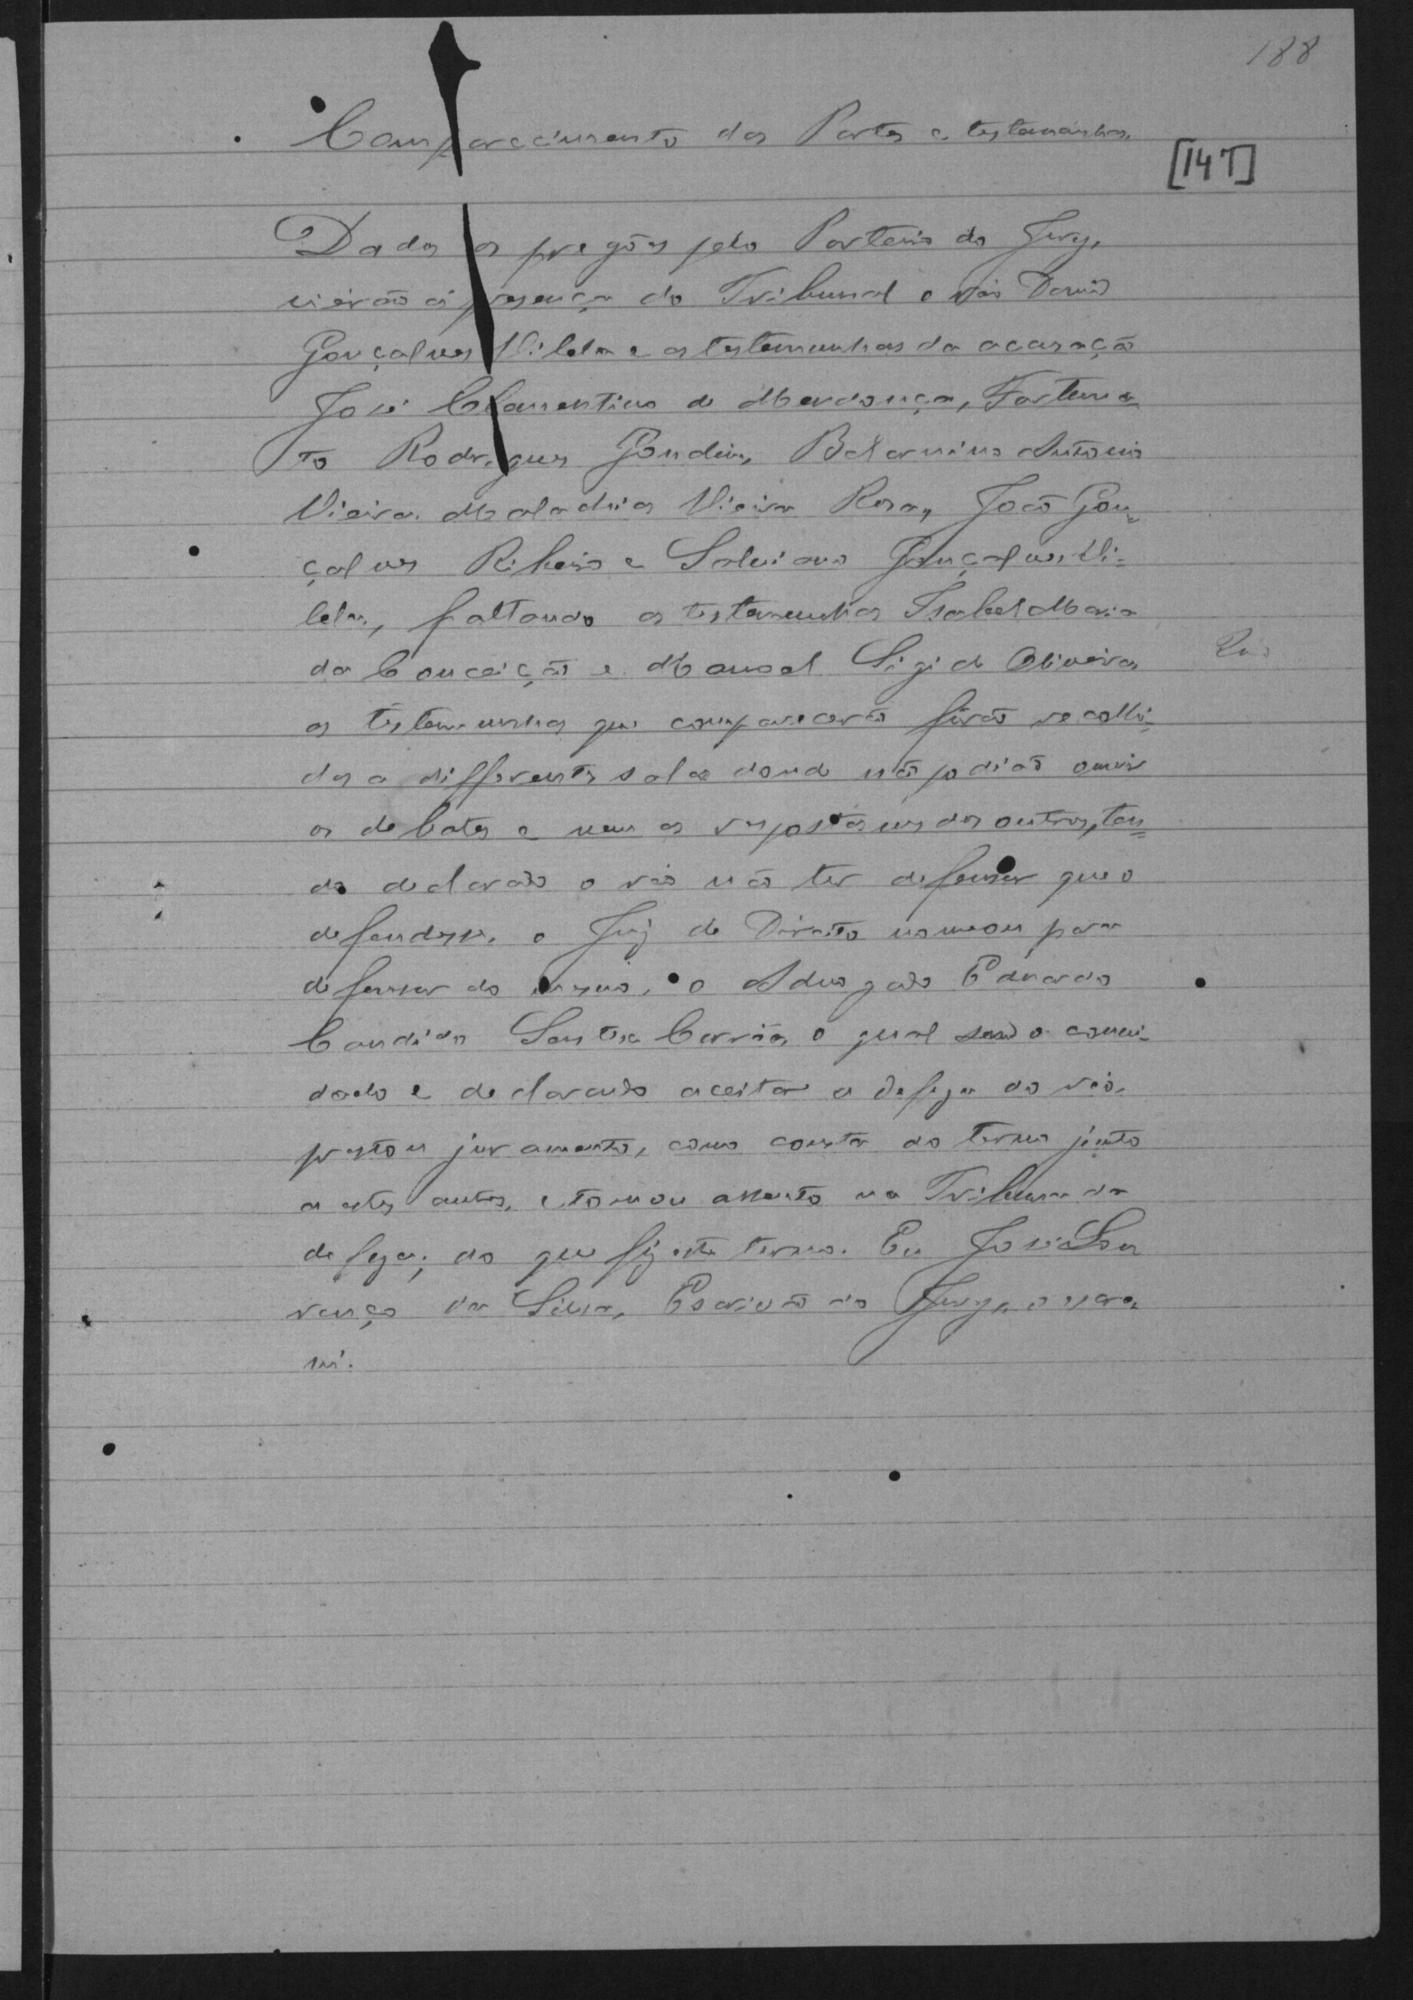 188
Comparecimento das Partes e testemunhas.
[147]
Dados os pregões pelo Porteiro do Jury,
vierão á presença do Tribunal o réo David
Gonçalves Vilela e as testemunhas da accusação
José Clamentino de Mendonça, Fortuna=
to Rodrigues Gondim, Belarmino Antonio
Vieira, Malachias Vieira Rosa, João Gon=
çalves Ribeiro e Salviano Gonçalves Vi=
lela, faltando as testemunhas Isabel Maria
da Conceição e Manoel de Oliveira
as testemunhas que comparecerão forão recolhi=
das a differentes salas donde não podião ouvir
os debates e nem as respostas umas das outras, ten=
do declarado o réo não ter defensor que o
defendesse, o Juiz de Direito nomeou para
defensor do mesmo, o Advogado Eduardo
Candido o qual sendo convi=
dado e declarando aceitar a defeza do réo,
prestou juramento, como consta do termo junto
a estes autos, e tomou assento na Tribuna da
defeza; do que fiz este termo. Eu José Lou
renço da Silva, Escrivão do Jury, o escre=
vi.